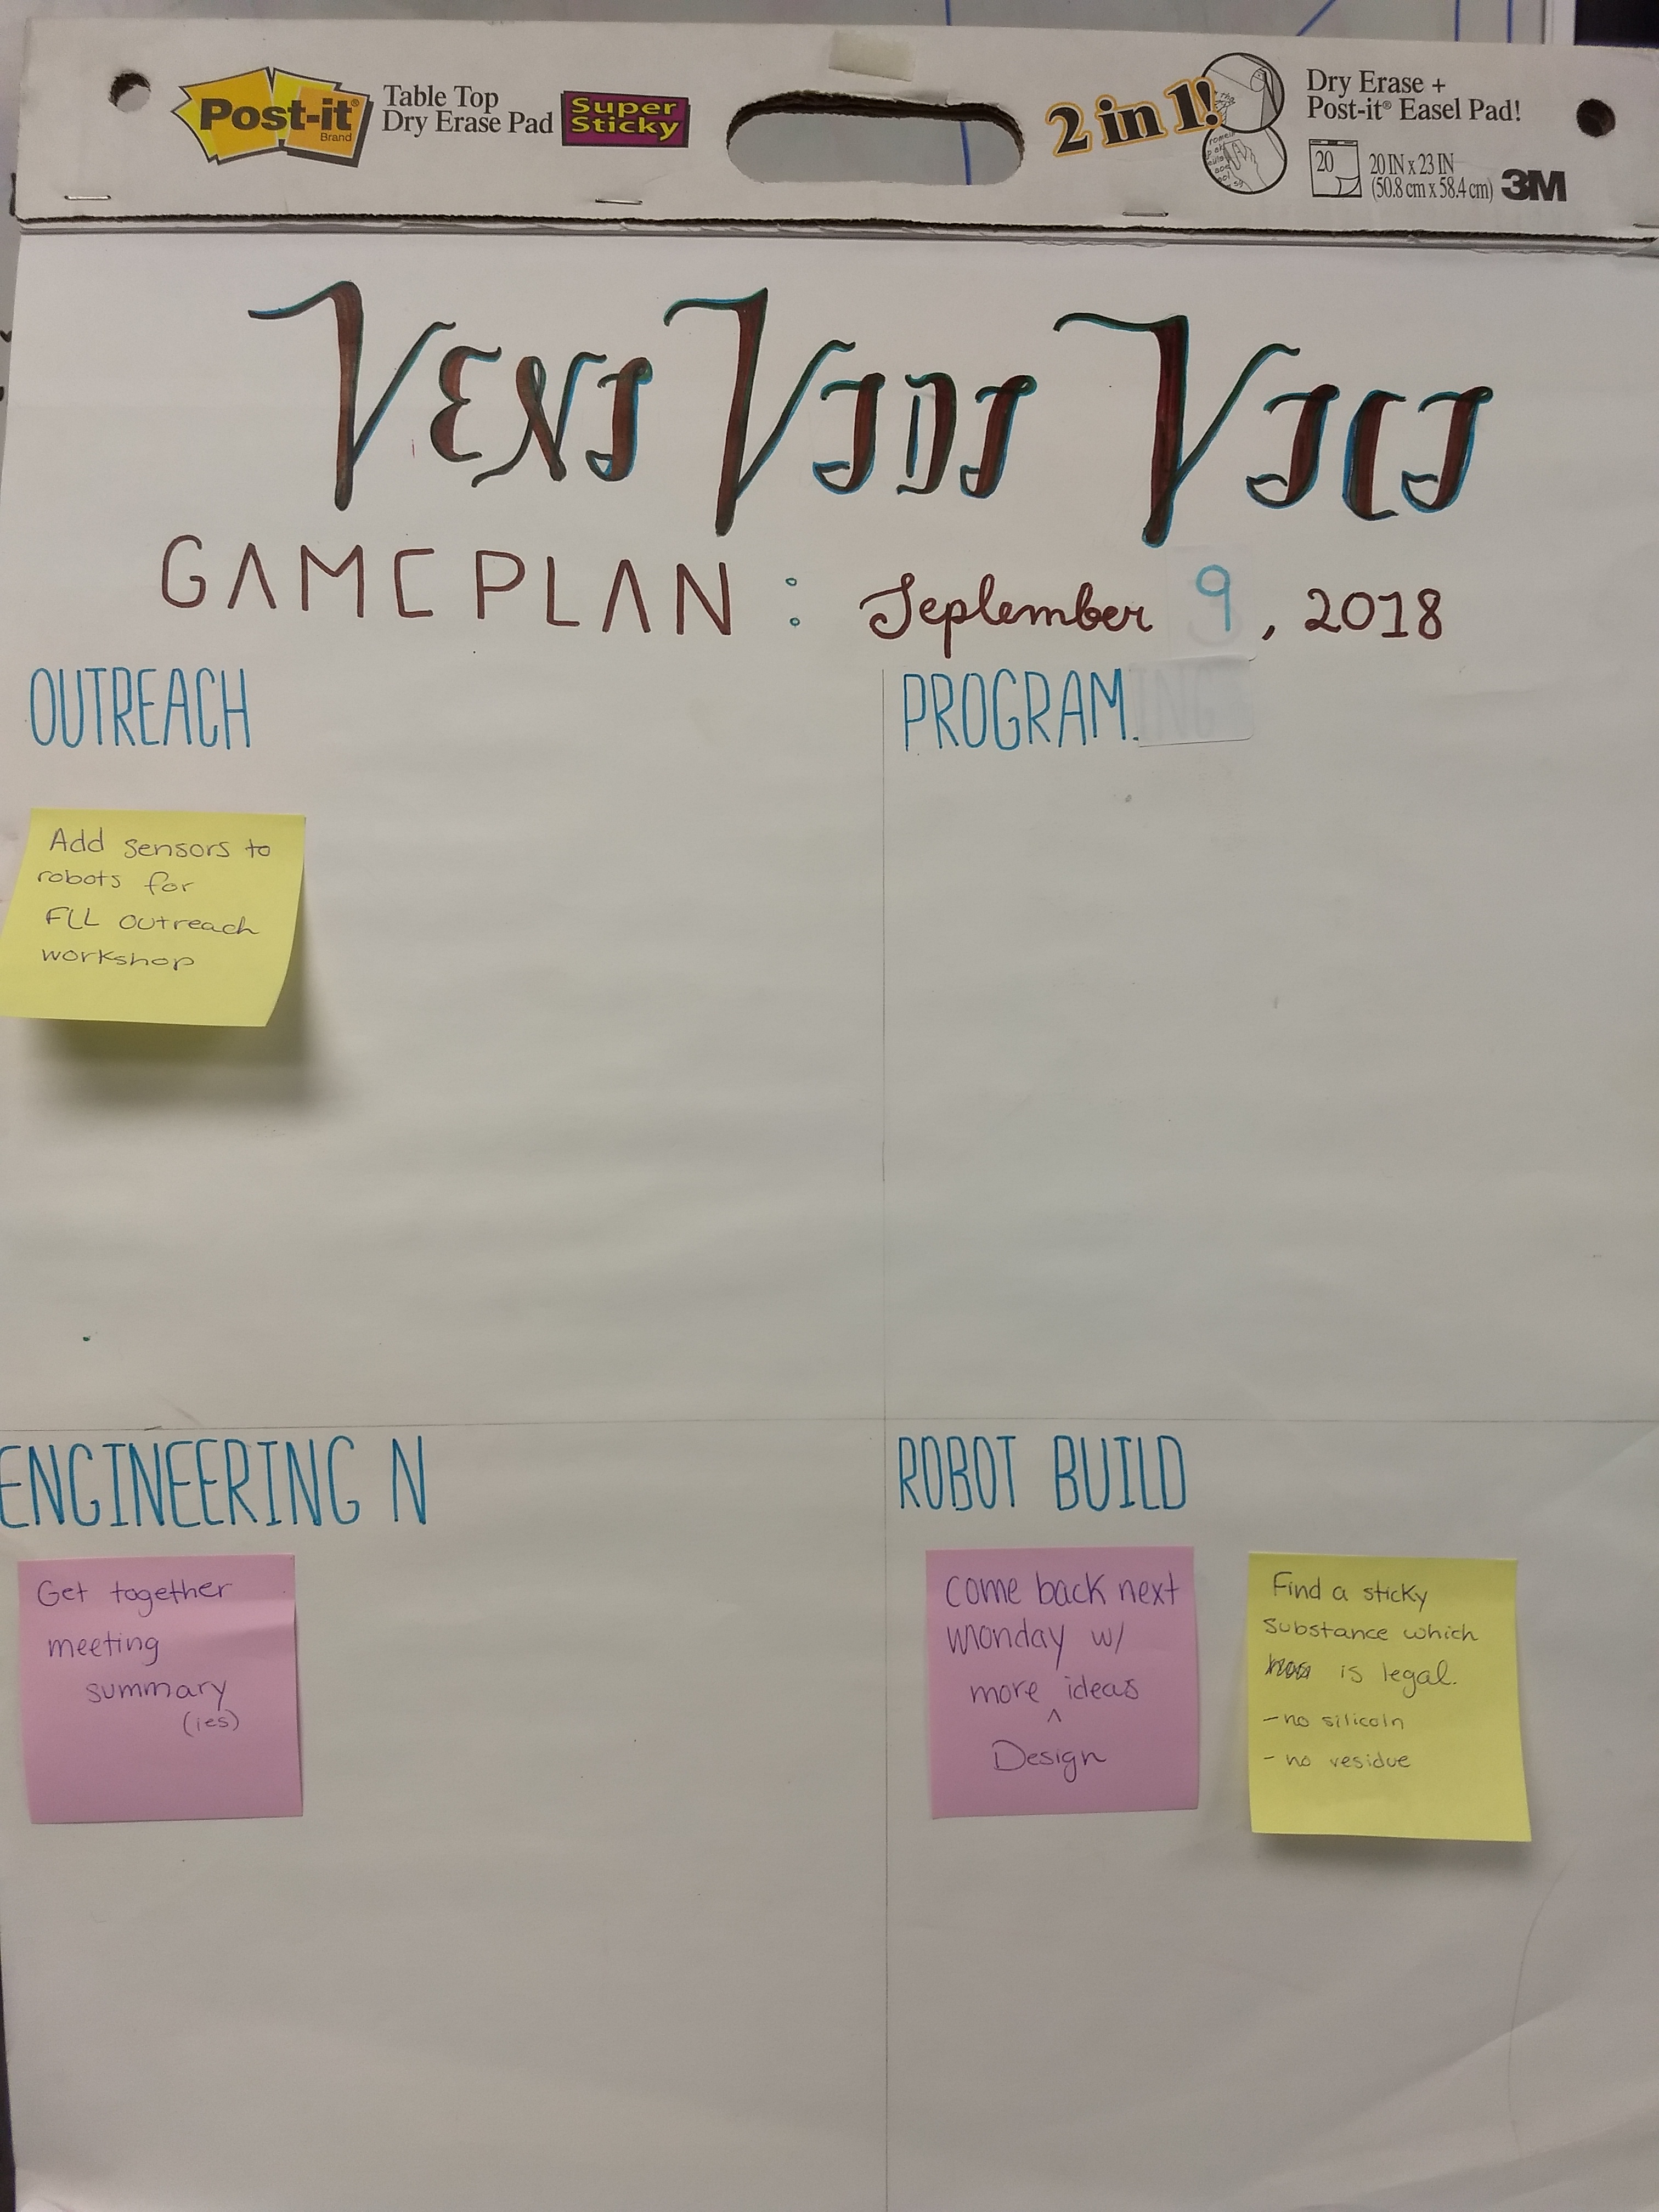 Post-it®
Brand
Table Top
Dry Erase Pad
Super
Sticky
2 in 1!
Dry Erase +
Post-it® Easel Pad!
20
20 IN x 23 IN
(50.8 cm x 58.4 cm)
3M
VENI VIDI VICI
GAME PLAN : September 9, 2018
OUTREACH
Add sensors to
robots for
FLL outreach
workshop
PROGRAM.
ENGINEERING N
Get together
meeting
summary
(ies)
ROBOT BUILD
come back next
monday w/
more ideas
^
Design
Find a sticky
substance which
is legal.
- no silicoln
- no residue